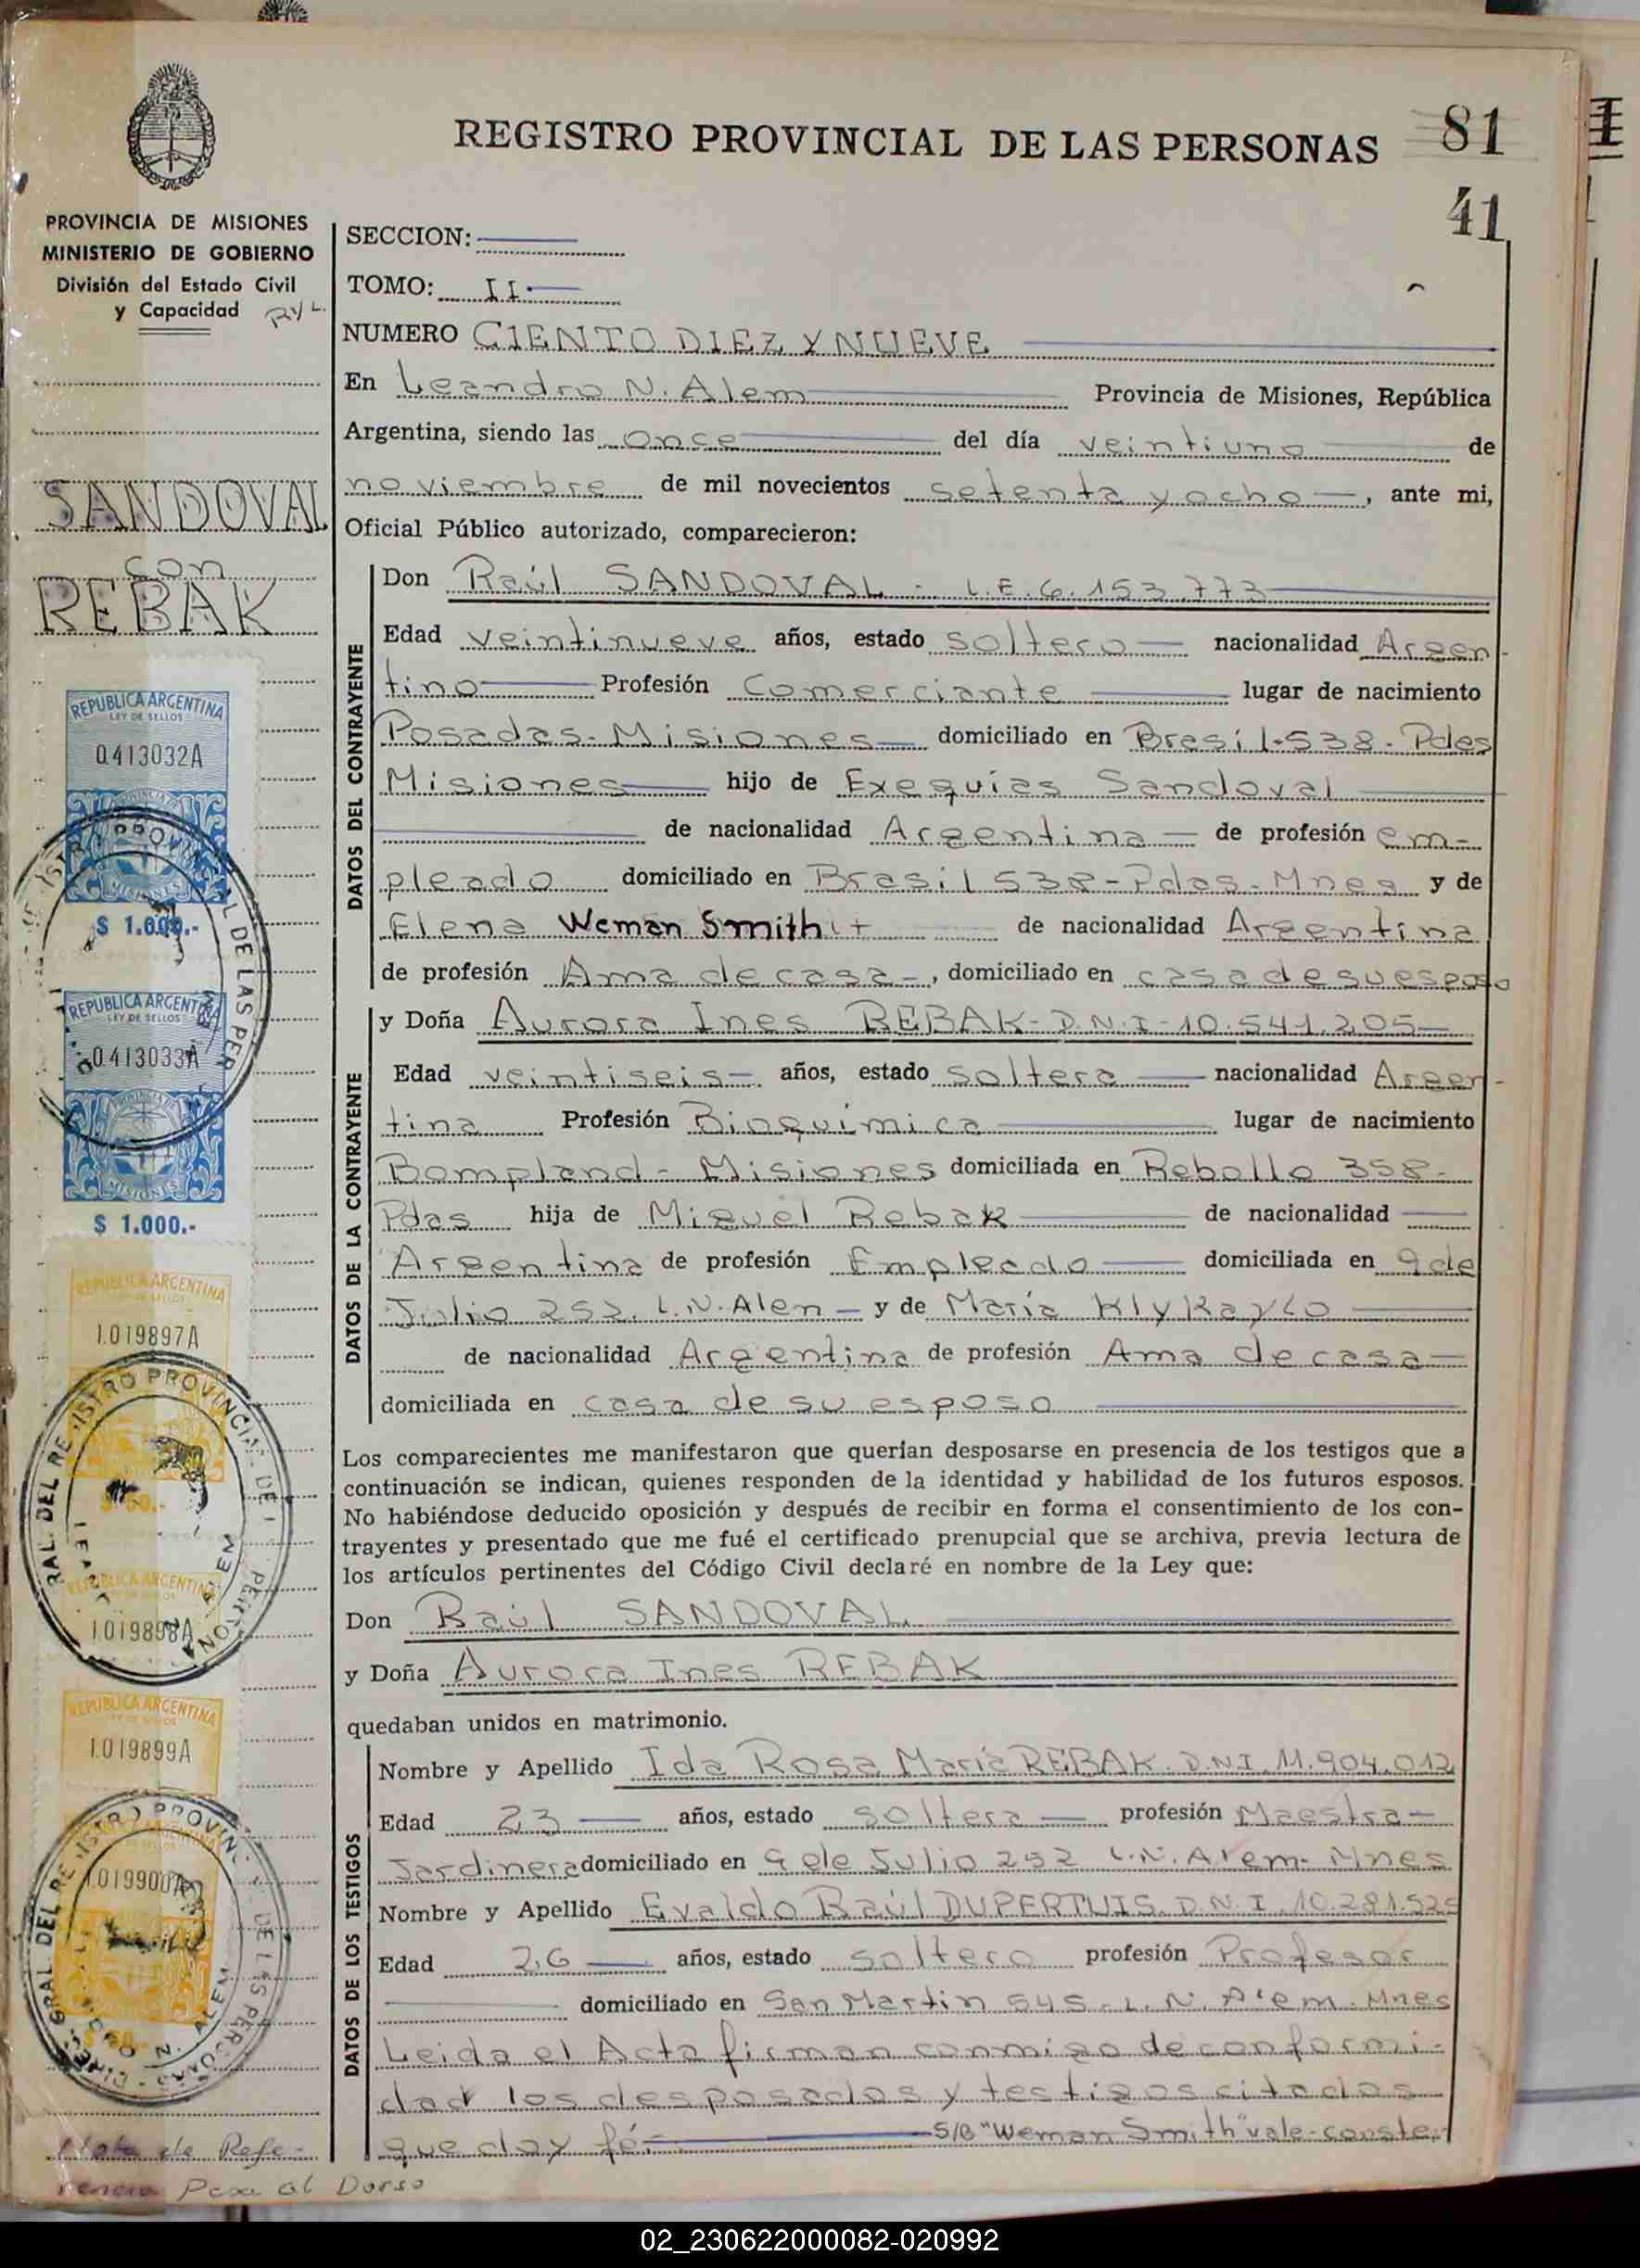 REGISTRO PROVINCIAL DE LAS PERSONAS
81
41
PROVINCIA DE MISIONES
MINISTERIO DE GOBIERNO
División del Estado Civil
y Capacidad
SANDOVAL
con
REBAK
REPUBLICA ARGENTINA
LEY DE SELLOS
0.413032A
MISIONES
$ 1.000.-
REPUBLICA ARGENTINA
LEY DE SELLOS
0.413033A
MISIONES
$ 1.000.-
REPUBLICA ARGENTINA
1.019897A
REPUBLICA ARGENTINA
1.019898A
REPUBLICA ARGENTINA
1.019899A
1.019900A
Nota de Refe-
rencia Pasa al Dorso
SECCION:
TOMO: II
NUMERO CIENTO DIEZ Y NUEVE
En Leandro N. Alem Provincia de Misiones, República
Argentina, siendo las once del día veintiuno de
noviembre de mil novecientos setenta y ocho, ante mi,
Oficial Público autorizado, comparecieron:
DATOS DEL CONTRAYENTE
Don Raúl SANDOVAL - L.E. 6.153.773
Edad veintinueve años, estado soltero nacionalidad Argen-
tino Profesión Comerciante lugar de nacimiento
Posadas-Misiones domiciliado en Brasil-538-Pdas
Misiones hijo de Exequías Sandoval
de nacionalidad Argentina de profesión em-
pleado domiciliado en Brasil 538-Pdas-Mnes y de
Elena Weman Smith de nacionalidad Argentina
de profesión Ama de casa-, domiciliado en casa de su esposo
DATOS DE LA CONTRAYENTE
y Doña Aurora Ines REBAK-D.N.I-10.541.205-
Edad veintiseis- años, estado soltera nacionalidad Argen-
tina Profesión Bioquímica lugar de nacimiento
Bompland-Misiones domiciliada en Rebollo 358-
Pdas hija de Miguel Rebak de nacionalidad
Argentina de profesión Empleado domiciliada en 9 de
Julio 252. L.N.Alen- y de María Klykaylo
de nacionalidad Argentina de profesión Ama de casa-
domiciliada en casa de su esposo
Los comparecientes me manifestaron que querían desposarse en presencia de los testigos que a
continuación se indican, quienes responden de la identidad y habilidad de los futuros esposos.
No habiéndose deducido oposición y después de recibir en forma el consentimiento de los con-
trayentes y presentado que me fué el certificado prenupcial que se archiva, previa lectura de
los artículos pertinentes del Código Civil declaré en nombre de la Ley que:
Don Raúl SANDOVAL
y Doña Aurora Ines REBAK
quedaban unidos en matrimonio.
DATOS DE LOS TESTIGOS
Nombre y Apellido Ida Rosa María REBAK. D.N.I. 11.904.012
Edad 23 años, estado soltera profesión Maestra-
Jardinera domiciliado en 9 de Julio 252 L.N.Alem-Mnes
Nombre y Apellido Evaldo Raúl DUPERTUIS. D.N.I. 10.281.525
Edad 26 años, estado soltero profesión Profesor
domiciliado en San Martín 545-L.N.Alem.Mnes
Leida el Acta firman conmigo de conformi-
dad los desposados y testigos citados
que doy fé- S/B "Weman Smith" vale-conste.
02_230622000082-020992